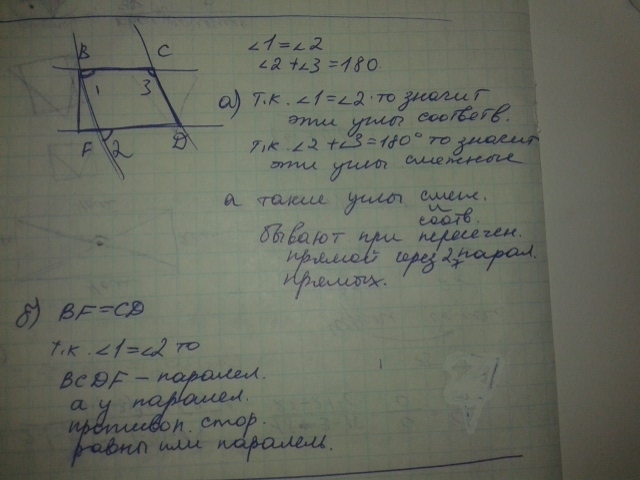 B C
1 3
F 2 D
∠1=∠2
∠2+∠3=180.
а) т.к. ∠1=∠2 то значит
эти углы соответв.
т.к. ∠2+∠3=180° то значит
эти углы смежные
а такие углы смеж.
и
соотв.
бывают при пересечен.
прямой через 2х парал.
прямых.
б) BF=CD
т.к. ∠1=∠2 то
BCDF – паралел.
а у паралел.
противоп. стор.
равны или паралель.